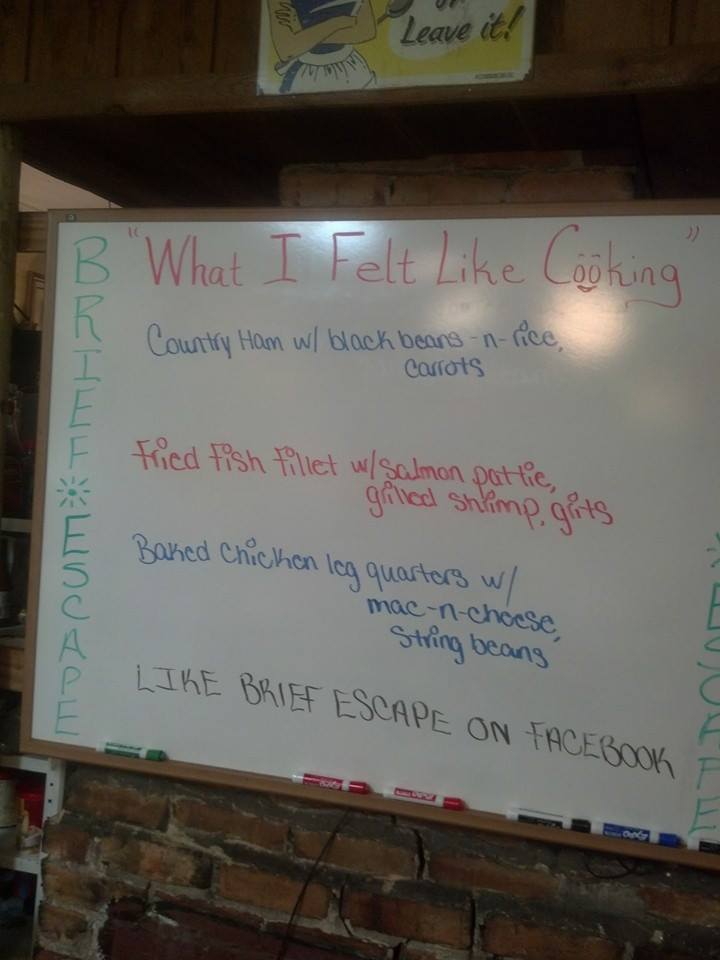 Leave it!
"What I Felt Like Cooking"
BRIEF ESCAPE
Country Ham w/ black beans-n-rice,
carrots
Fried fish fillet w/salmon pattie,
grilled shrimp, grits
Baked chicken leg quarters w/
mac-n-cheese,
String beans
LIKE BRIEF ESCAPE ON FACEBOOK
ESCAPE
EXPO